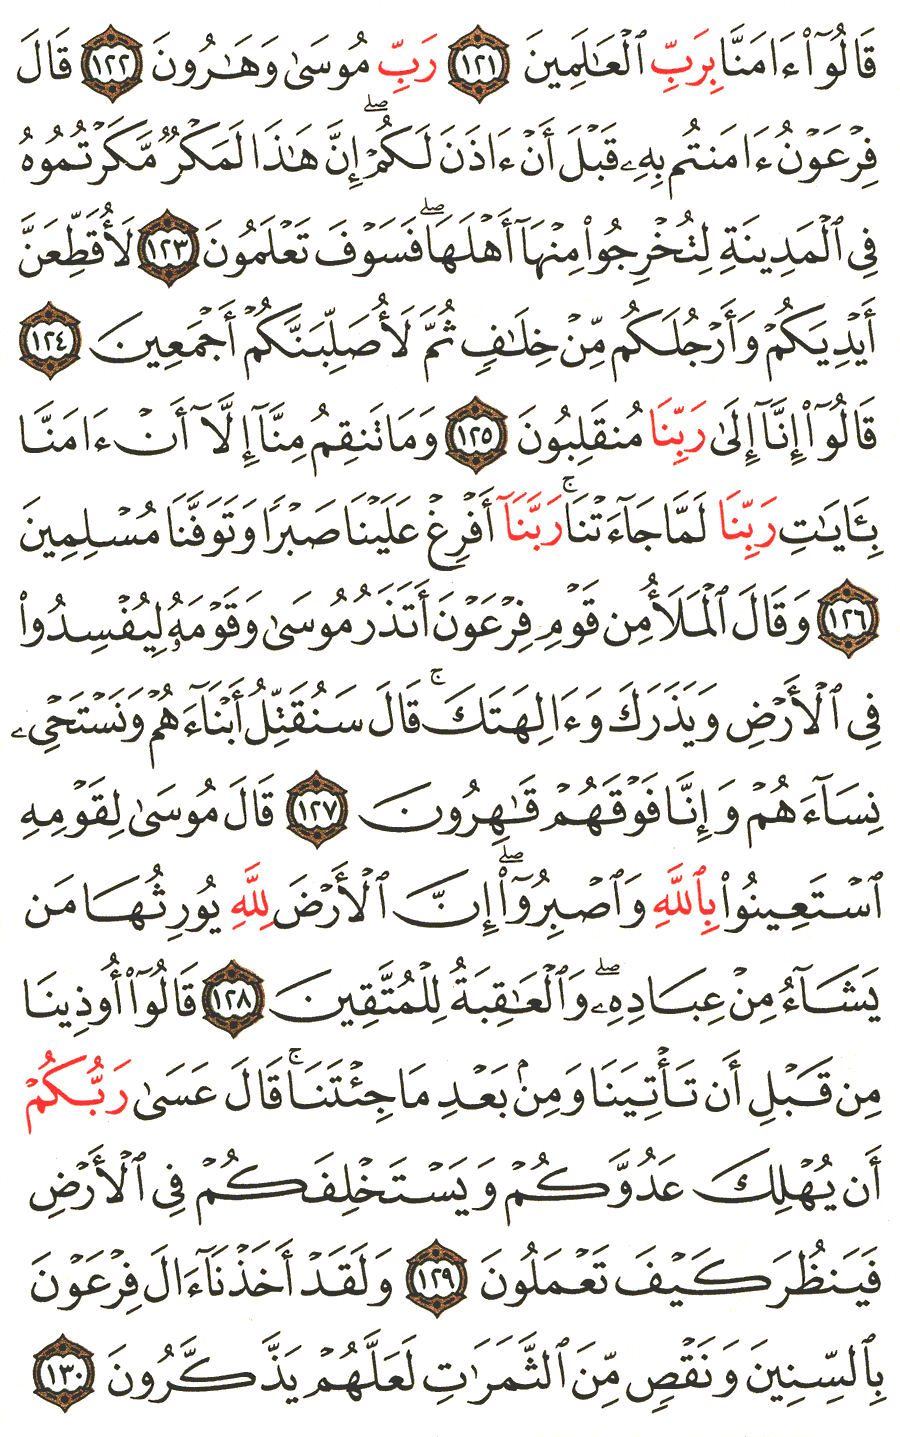 قَالُوٓا۟ ءَامَنَّا بِرَبِّ ٱلْعَـٰلَمِينَ ١٢١ رَبِّ مُوسَىٰ وَهَـٰرُونَ ١٢٢ قَالَ
فِرْعَوْنُ ءَامَنتُم بِهِۦ قَبْلَ أَنْ ءَاذَنَ لَكُمْ ۖ إِنَّ هَـٰذَا لَمَكْرٌ مَّكَرْتُمُوهُ
فِى ٱلْمَدِينَةِ لِتُخْرِجُوا۟ مِنْهَآ أَهْلَهَا ۖ فَسَوْفَ تَعْلَمُونَ ١٢٣ لَأُقَطِّعَنَّ
أَيْدِيَكُمْ وَأَرْجُلَكُم مِّنْ خِلَـٰفٍ ثُمَّ لَأُصَلِّبَنَّكُمْ أَجْمَعِينَ ١٢٤
قَالُوٓا۟ إِنَّآ إِلَىٰ رَبِّنَا مُنقَلِبُونَ ١٢٥ وَمَا تَنقِمُ مِنَّآ إِلَّآ أَنْ ءَامَنَّا
بِـَٔايَـٰتِ رَبِّنَا لَمَّا جَآءَتْنَا ۚ رَبَّنَآ أَفْرِغْ عَلَيْنَا صَبْرًا وَتَوَفَّنَا مُسْلِمِينَ
١٢٦ وَقَالَ ٱلْمَلَأُ مِن قَوْمِ فِرْعَوْنَ أَتَذَرُ مُوسَىٰ وَقَوْمَهُۥ لِيُفْسِدُوا۟
فِى ٱلْأَرْضِ وَيَذَرَكَ وَءَالِهَتَكَ ۚ قَالَ سَنُقَتِّلُ أَبْنَآءَهُمْ وَنَسْتَحْىِۦ
نِسَآءَهُمْ وَإِنَّا فَوْقَهُمْ قَـٰهِرُونَ ١٢٧ قَالَ مُوسَىٰ لِقَوْمِهِ
ٱسْتَعِينُوا۟ بِٱللَّهِ وَٱصْبِرُوٓا۟ ۖ إِنَّ ٱلْأَرْضَ لِلَّهِ يُورِثُهَا مَن
يَشَآءُ مِنْ عِبَادِهِۦ ۖ وَٱلْعَـٰقِبَةُ لِلْمُتَّقِينَ ١٢٨ قَالُوٓا۟ أُوذِينَا
مِن قَبْلِ أَن تَأْتِيَنَا وَمِنۢ بَعْدِ مَا جِئْتَنَا ۚ قَالَ عَسَىٰ رَبُّكُمْ
أَن يُهْلِكَ عَدُوَّكُمْ وَيَسْتَخْلِفَكُمْ فِى ٱلْأَرْضِ
فَيَنظُرَ كَيْفَ تَعْمَلُونَ ١٢٩ وَلَقَدْ أَخَذْنَآ ءَالَ فِرْعَوْنَ
بِٱلسِّنِينَ وَنَقْصٍ مِّنَ ٱلثَّمَرَٰتِ لَعَلَّهُمْ يَذَّكَّرُونَ ١٣٠